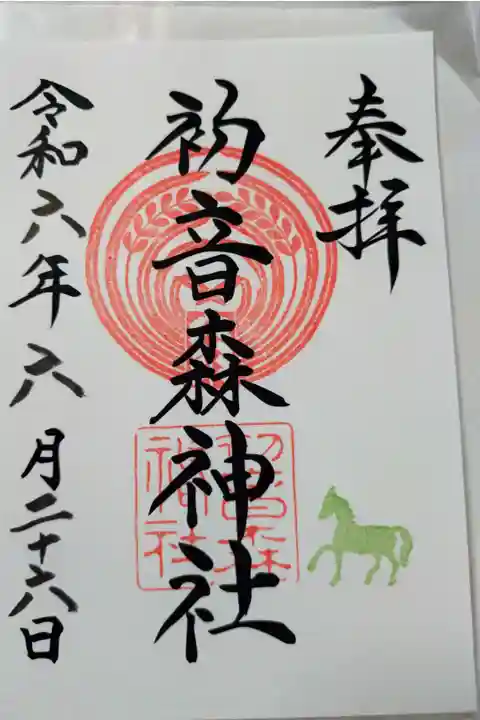 奉拝
初音森神社
初音森神社
令和六年六月二十六日